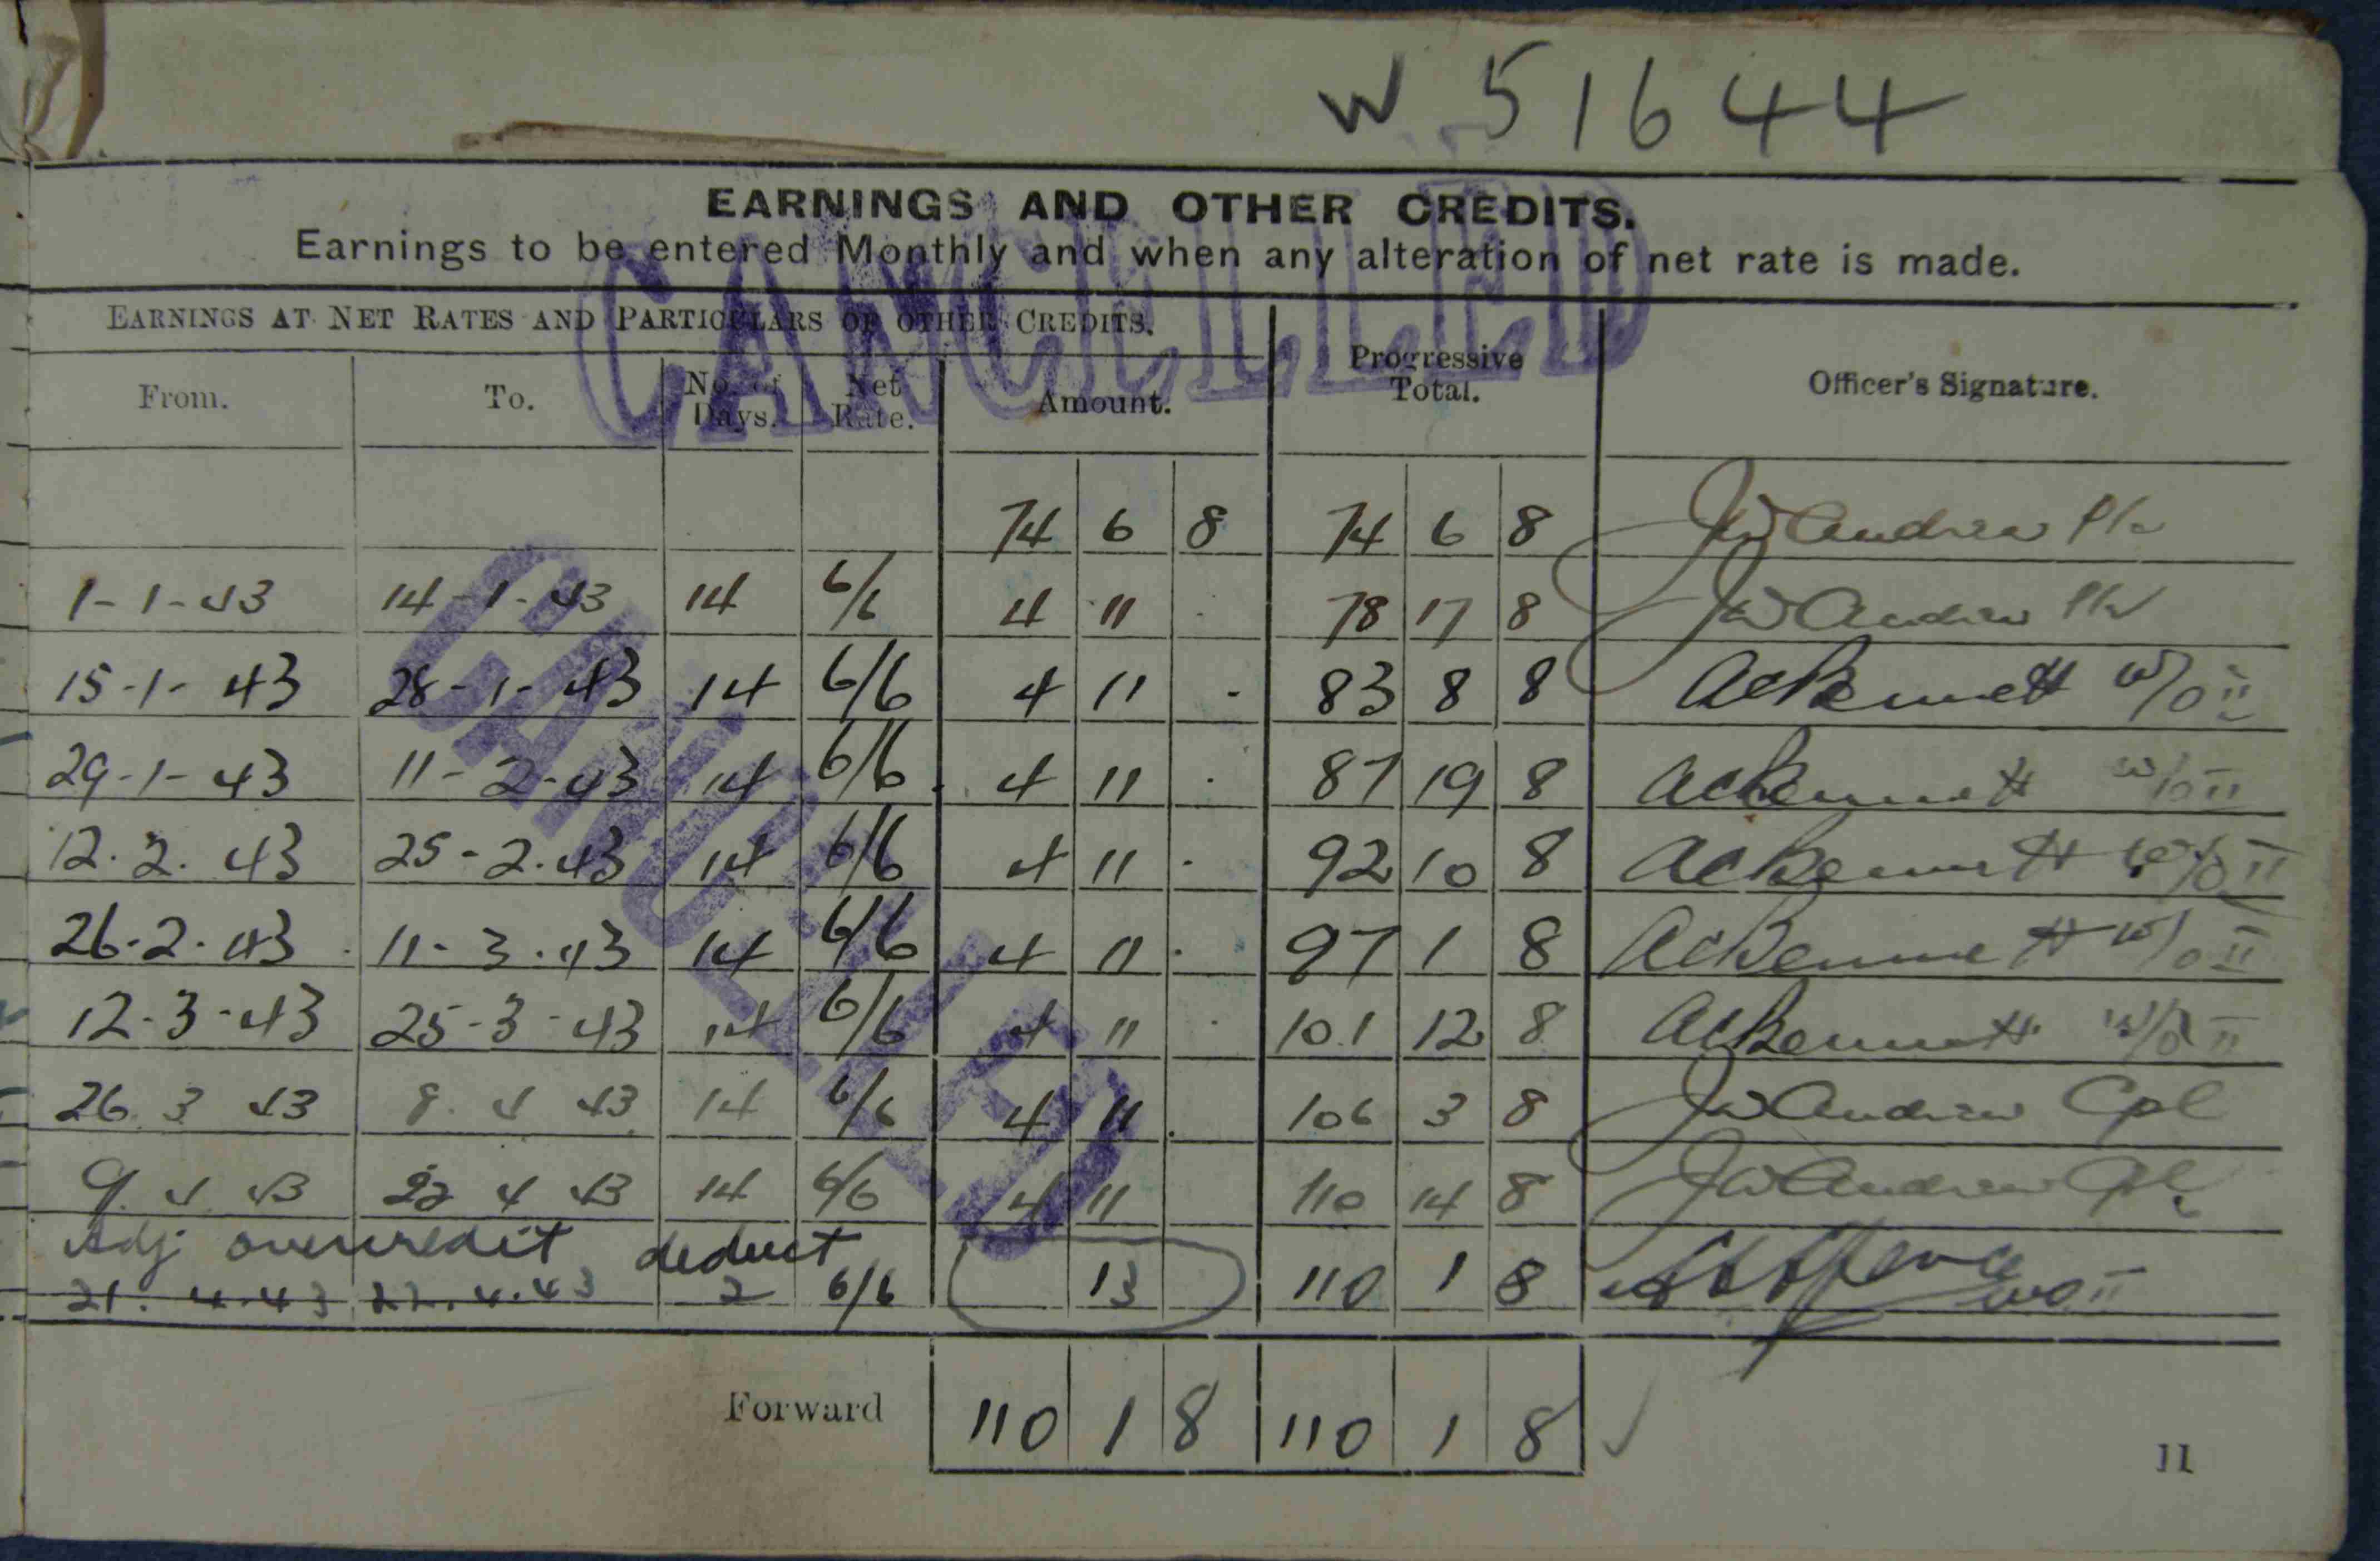 W 51644
EARNINGS AND OTHER CREDITS.
Earnings to be entered Monthly and when any alteration of net rate is made.
EARNINGS AT NET RATES AND PARTICULARS OF OTHER CREDITS.
From. To. No. of Days. Net Rate. Amount. Progressive Total. Officer's Signature.
CANCELLED
CANCELLED
74 6 8 74 6 8 JW Andrew
1-1-43 14-1-43 14 6/6 4 11 - 78 17 8 JW Andrew
15-1-43 28-1-43 14 6/6 4 11 - 83 8 8 ACBennett W/O II
29-1-43 11-2-43 14 6/6 4 11 - 87 19 8 ACBennett W/O II
12.2.43 25-2.43 14 6/6 4 11 - 92 10 8 ACBennett W/O II
26.2.43 11-3.43 14 6/6 4 11 - 97 1 8 ACBennett W/O II
12-3-43 25-3-43 14 6/6 4 11 - 101 12 8 ACBennett W/O II
26 3 43 8 4 43 14 6/6 4 11 - 106 3 8 JW Andrew Cpl
9 4 43 22 4 43 14 6/6 4 11 110 14 8 JW Andrew Cpl
Adj overcredit deduct
21.4.43 22.4.43 2 6/6 13 110 1 8 WO II
Forward 110 1 8 110 1 8
11